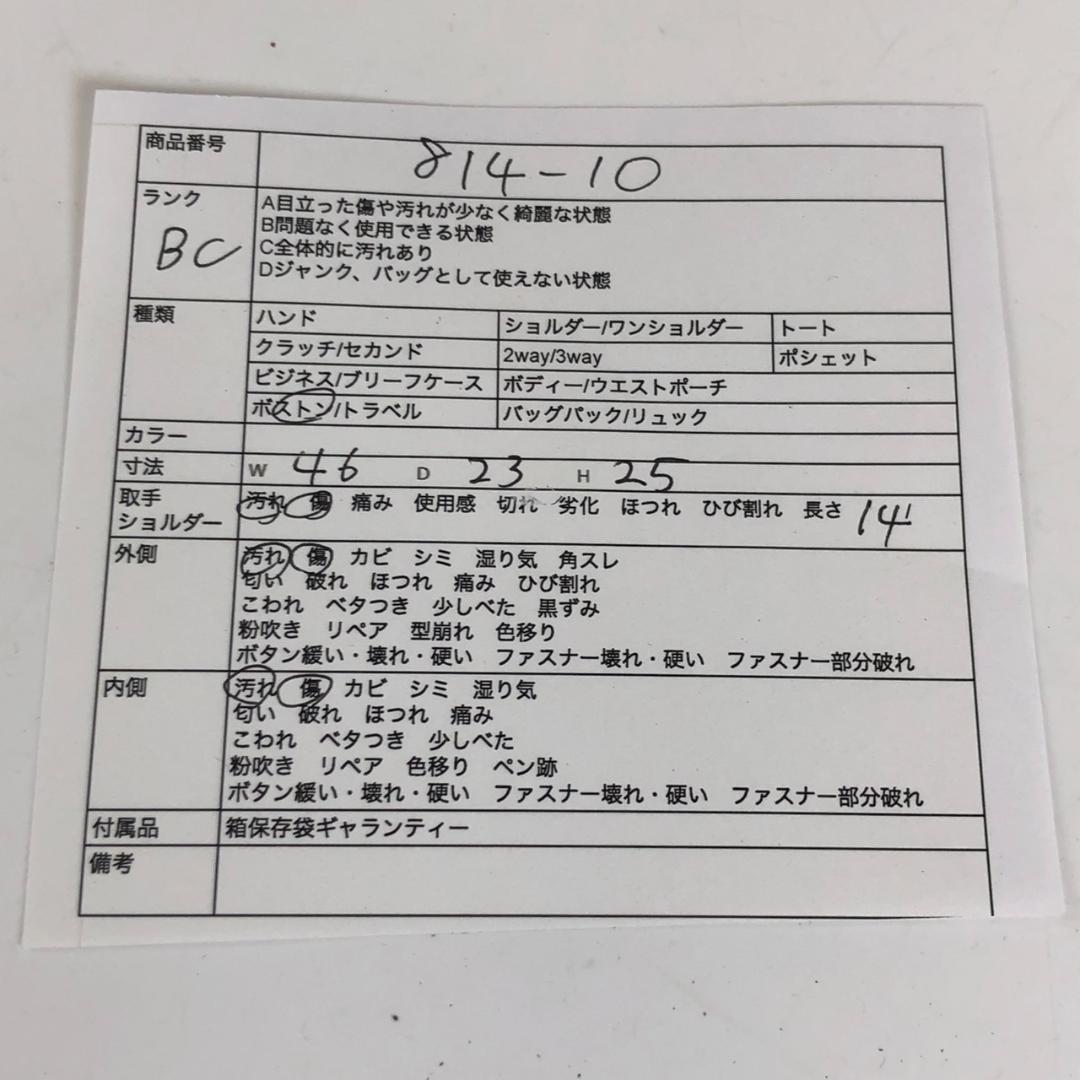 商品番号 814-10
ランク BC
A目立った傷や汚れが少なく綺麗な状態
B問題なく使用できる状態
C全体的に汚れあり
Dジャンク、バッグとして使えない状態
種類 ハンド ショルダー/ワンショルダー トート
クラッチ/セカンド 2way/3way ポシェット
ビジネス/ブリーフケース ボディー/ウエストポーチ
ボストン/トラベル バッグパック/リュック
カラー
寸法 W 46 D 23 H 25
取手 汚れ 傷 痛み 使用感 切れ 劣化 ほつれ ひび割れ 長さ 14
ショルダー
外側 汚れ 傷 カビ シミ 湿り気 角スレ
匂い 破れ ほつれ 痛み ひび割れ
こわれ ベタつき 少しべた 黒ずみ
粉吹き リペア 型崩れ 色移り
ボタン緩い・壊れ・硬い ファスナー壊れ・硬い ファスナー部分破れ
内側 汚れ 傷 カビ シミ 湿り気
匂い 破れ ほつれ 痛み
こわれ ベタつき 少しべた
粉吹き リペア 色移り ペン跡
ボタン緩い・壊れ・硬い ファスナー壊れ・硬い ファスナー部分破れ
付属品 箱保存袋ギャランティー
備考